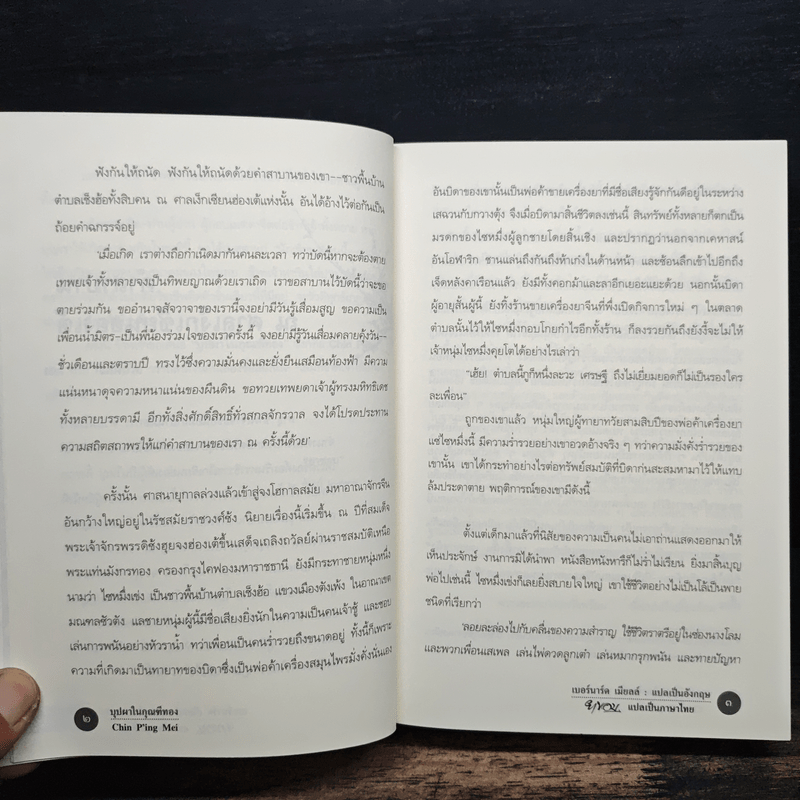 ฟังกันให้ถนัด ฟังกันให้ถนัดด้วยคำสาบานของเขา--ชาวพื้นบ้าน
ตำบลเช็งฮ้อทั้งสิบคน ณ ศาลเง็กเซียนฮ่องเต้แห่งนั้น อันได้อ้างไว้ต่อกันเป็น
ถ้อยคำฉกรรจ์อยู่
'เมื่อเกิด เราต่างถือกำเนิดมากันคนละเวลา ทว่าบัดนี้หากจะต้องตาย
เทพยเจ้าทั้งหลายจงเป็นทิพยญาณด้วยเราเถิด เราขอสาบานไว้บัดนี้ว่าจะขอ
ตายร่วมกัน ขออำนาจสัจวาจาของเรานี้จงอย่ามีวันรู้เสื่อมสูญ ขอความเป็น
เพื่อนน้ำมิตร-เป็นพี่น้องร่วมใจของเราครั้งนี้ จงอย่ามีรู้วันเสื่อมคลายคุ้งวัน--
ชั่วเดือนและตราบปี ทรงไว้ซึ่งความมั่นคงและยั่งยืนเสมือนท้องฟ้า มีความ
แน่นหนาดุจความหนาแน่นของผืนดิน ขอทวยเทพยดาเจ้าผู้ทรงมหิทธิเดช
ทั้งหลายบรรดามี อีกทั้งสิ่งศักดิ์สิทธิ์ทั่วสกลจักรวาล จงได้โปรดประทาน
ความสถิตสถาพรให้แก่คำสาบานของเรา ณ ครั้งนี้ด้วย'
ครั้งนั้น ศาสนายุกาลล่วงแล้วเข้าสู่จงโฮกาลสมัย มหาอาณาจักรจีน
อันกว้างใหญ่อยู่ในรัชสมัยราชวงศ์ซ้ง นิยายเรื่องนี้เริ่มขึ้น ณ ปีที่สมเด็จ
พระเจ้าจักรพรรดิซ้งฮุยจงฮ่องเต้ขึ้นเสด็จเถลิงถวัลย์ผ่านราชสมบัติเหนือ
พระแท่นมังกรทอง ครองกรุงไคฟองมหาราชธานี ยังมีกระทาชายหนุ่มหนึ่ง
นามว่า ไซหมึ่งเช่ง เป็นชาวพื้นบ้านตำบลเช็งฮ้อ แขวงเมืองตังเพ้ง ในอาณาเขต
มณฑลซัวตัง แลชายหนุ่มผู้นี้มีชื่อเสียงยิ่งนักในความเป็นคนเจ้าชู้ และชอบ
เล่นการพนันอย่างหัวราน้ำ ทว่าเพื่อนเป็นคนร่ำรวยถึงขนาดอยู่ ทั้งนี้ก็เพราะ
ความที่เกิดมาเป็นทายาทของบิดาซึ่งเป็นพ่อค้าเครื่องสมุนไพรมั่งคั่งนั่นเอง
๒
บุปผาในกุณฑีทอง
Chin P'ing Mei
อันบิดาของเขานั้นเป็นพ่อค้าขายเครื่องยาที่มีชื่อเสียงรู้จักกันดีอยู่ในระหว่าง
เสฉวนกับกวางตุ้ง จึงเมื่อบิดามาสิ้นชีวิตลงเช่นนี้ สินทรัพย์ทั้งหลายก็ตกเป็น
มรดกของไซหมึ่งผู้ลูกชายโดยสิ้นเชิง และปรากฏว่านอกจากเคหาสน์
อันโอฬาริก ชานแล่นถึงกันถึงห้าเก๋งในด้านหน้า และซ้อนลึกเข้าไปอีกถึง
เจ็ดหลังคาเรือนแล้ว ยังมีทั้งคอกม้าและลาอีกเยอะแยะด้วย นอกนั้นบิดา
ผู้อายุสั้นผู้นี้ ยังทิ้งร้านขายเครื่องยาจีนที่พึ่งเปิดกิจการใหม่ ๆ ในตลาด
ตำบลนั้นไว้ให้ไซหมึ่งกอบโกยกำไรอีกทั้งร้าน ก็ลงรวยกันถึงยังงี้จะไม่ให้
เจ้าหนุ่มไซหมึ่งคุยโตได้อย่างไรเล่าว่า
"เฮ้ย! ตำบลนี้กูก็หนึ่งละวะ เศรษฐี ถึงไม่เยี่ยมยอดก็ไม่เป็นรองใคร
ละเพื่อน"
ถูกของเขาแล้ว หนุ่มใหญ่ผู้ทายาทวัยสามสิบปีของพ่อค้าเครื่องยา
แซ่ไซหมึ่งนี้ มีความร่ำรวยอย่างเขาอวดอ้างจริง ๆ ทว่าความมั่งคั่งร่ำรวยของ
เขานั้น เขาได้กระทำอย่างไรต่อทรัพย์สมบัติที่บิดาก่นสะสมหามาไว้ให้แทบ
ล้มประดาตาย พฤติการณ์ของเขามีดังนี้
ตั้งแต่เด็กมาแล้วที่นิสัยของความเป็นคนไม่เอาถ่านแสดงออกมาให้
เห็นประจักษ์ งานการมิได้นำพา หนังสือหนังหารึก็ไม่ร่ำไม่เรียน ยิ่งมาสิ้นบุญ
พ่อไปเช่นนี้ ไซหมึ่งเช่งก็เลยยิ่งสบายใจใหญ่ เขาใช้ชีวิตอย่างไม่เป็นโล้เป็นพาย
ชนิดที่เรียกว่า
'ลอยละล่องไปกับคลื่นของความสำราญ ใช้ชีวิตราตรีอยู่ในซ่องนางโลม
และพวกเพื่อนเสเพล เล่นไพ่ดวดลูกเต๋า เล่นหมากรุกพนัน และทายปัญหา
เบอร์นาร์ด เมียลล์ : แปลเป็นอังกฤษ
แปลเป็นภาษาไทย
๓